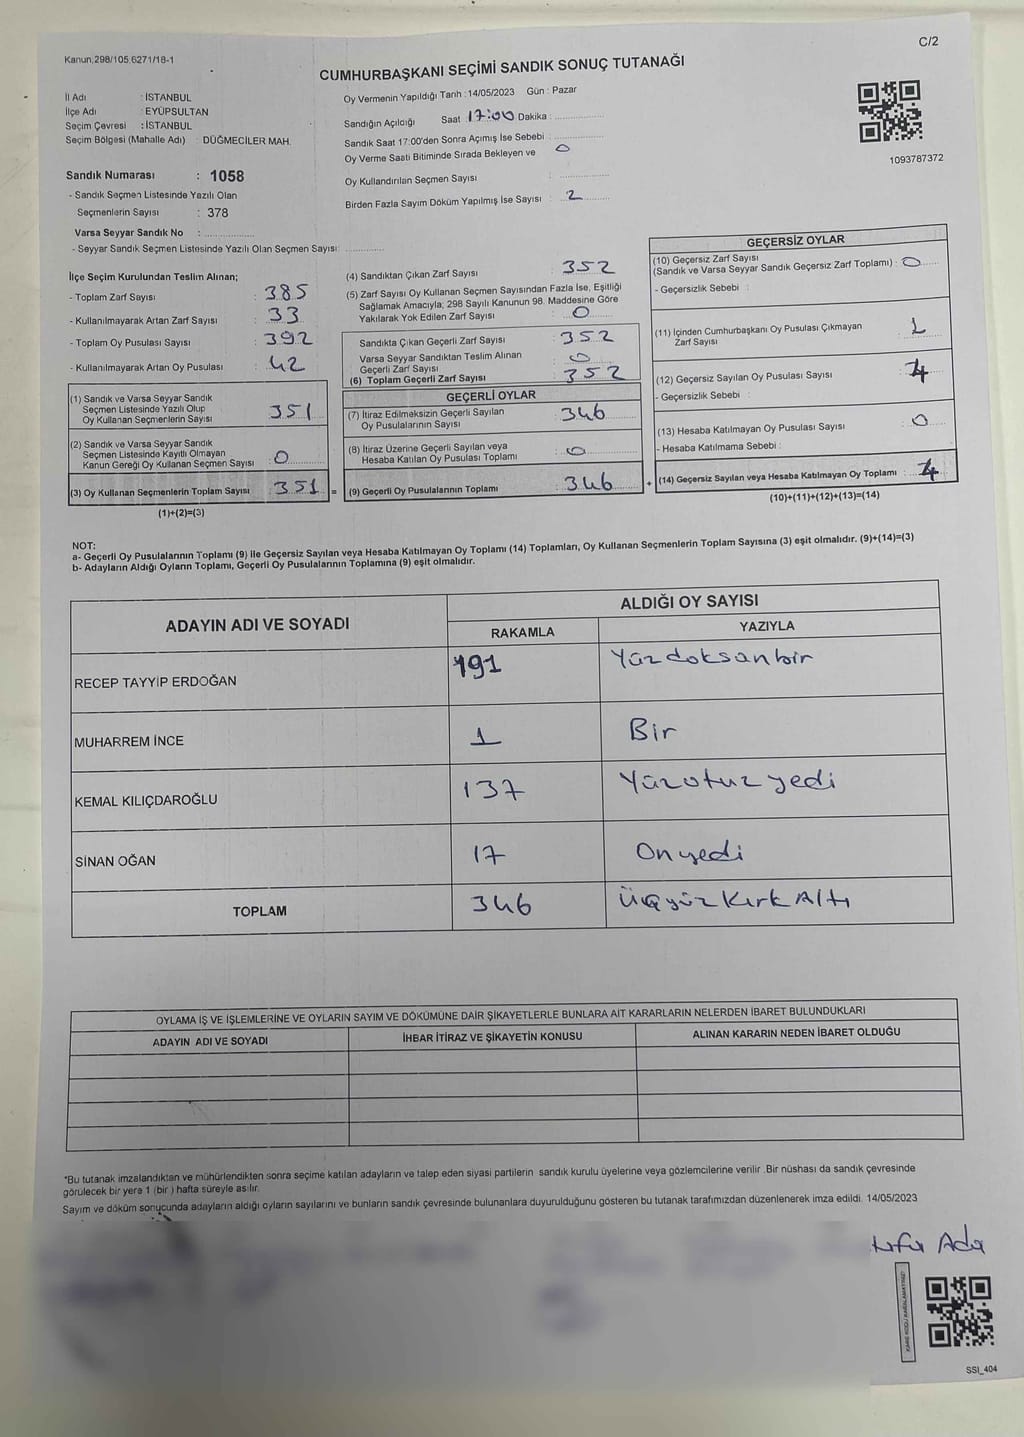 C/2
Kanun.298/105,6271/18-1
CUMHURBAŞKANI SEÇİMİ SANDIK SONUÇ TUTANAĞI
İl Adı : İSTANBUL
İlçe Adı : EYÜPSULTAN
Seçim Çevresi : İSTANBUL
Seçim Bölgesi (Mahalle Adı) : DÜĞMECİLER MAH.
Sandık Numarası : 1058
- Sandık Seçmen Listesinde Yazılı Olan
Seçmenlerin Sayısı : 378
Varsa Seyyar Sandık No :
- Seyyar Sandık Seçmen Listesinde Yazılı Olan Seçmen Sayısı:
Oy Vermenin Yapıldığı Tarih : 14/05/2023 Gün : Pazar
Sandığın Açıldığı Saat 17:00 Dakika :
Sandık Saat 17:00'den Sonra Açımış İse Sebebi :
Oy Verme Saati Bitiminde Sırada Bekleyen ve 0
Oy Kullandırılan Seçmen Sayısı :
Birden Fazla Sayım Döküm Yapılmış İse Sayısı : 2
1093787372
İlçe Seçim Kurulundan Teslim Alınan;
- Toplam Zarf Sayısı : 385
- Kullanılmayarak Artan Zarf Sayısı : 33
- Toplam Oy Pusulası Sayısı : 392
- Kullanılmayarak Artan Oy Pusulası : 42
(1) Sandık ve Varsa Seyyar Sandık
Seçmen Listesinde Yazılı Olup
Oy Kullanan Seçmenlerin Sayısı : 351
(2) Sandık ve Varsa Seyyar Sandık
Seçmen Listesinde Kayıtlı Olmayan
Kanun Gereği Oy Kullanan Seçmen Sayısı : 0
(3) Oy Kullanan Seçmenlerin Toplam Sayısı : 351 =
(1)+(2)=(3)
(4) Sandıktan Çıkan Zarf Sayısı : 352
(5) Zarf Sayısı Oy Kullanan Seçmen Sayısından Fazla İse, Eşitliği
Sağlamak Amacıyla; 298 Sayılı Kanunun 98. Maddesine Göre
Yakılarak Yok Edilen Zarf Sayısı : 0
Sandıkta Çıkan Geçerli Zarf Sayısı : 352
Varsa Seyyar Sandıktan Teslim Alınan
Geçerli Zarf Sayısı : 0
(6) Toplam Geçerli Zarf Sayısı : 352
GEÇERLİ OYLAR
(7) İtiraz Edilmeksizin Geçerli Sayılan
Oy Pusulalarının Sayısı : 346
(8) İtiraz Üzerine Geçerli Sayılan veya
Hesaba Katılan Oy Pusulası Toplamı : 0
(9) Geçerli Oy Pusulalarının Toplamı : 346 +
GEÇERSİZ OYLAR
(10) Geçersiz Zarf Sayısı
(Sandık ve Varsa Seyyar Sandık Geçersiz Zarf Toplamı) : 0
- Geçersizlik Sebebi :
(11) İçinden Cumhurbaşkanı Oy Pusulası Çıkmayan
Zarf Sayısı : 1
(12) Geçersiz Sayılan Oy Pusulası Sayısı :
- Geçersizlik Sebebi :
(13) Hesaba Katılmayan Oy Pusulası Sayısı : 0
- Hesaba Katılmama Sebebi :
(14) Geçersiz Sayılan veya Hesaba Katılmayan Oy Toplamı :
(10)+(11)+(12)+(13)=(14)
NOT:
a- Geçerli Oy Pusulalarının Toplamı (9) ile Geçersiz Sayılan veya Hesaba Katılmayan Oy Toplamı (14) Toplamları, Oy Kullanan Seçmenlerin Toplam Sayısına (3) eşit olmalıdır. (9)+(14)=(3)
b- Adayların Aldığı Oyların Toplamı, Geçerli Oy Pusulalarının Toplamına (9) eşit olmalıdır.
ADAYIN ADI VE SOYADI
ALDIĞI OY SAYISI
RAKAMLA YAZIYLA
RECEP TAYYİP ERDOĞAN 191 Yüzdoksanbir
MUHARREM İNCE 1 Bir
KEMAL KILIÇDAROĞLU 137 Yüzotuzyedi
SİNAN OĞAN 17 Onyedi
TOPLAM 346 Üçyüz Kırk Altı
OYLAMA İŞ VE İŞLEMLERİNE VE OYLARIN SAYIM VE DÖKÜMÜNE DAİR ŞİKAYETLERLE BUNLARA AİT KARARLARIN NELERDEN İBARET BULUNDUKLARI
ADAYIN ADI VE SOYADI İHBAR İTİRAZ VE ŞİKAYETİN KONUSU ALINAN KARARIN NEDEN İBARET OLDUĞU
*Bu tutanak imzalandıktan ve mühürlendikten sonra seçime katılan adayların ve talep eden siyasi partilerin sandık kurulu üyelerine veya gözlemcilerine verilir .Bir nüshası da sandık çevresinde
görülecek bir yere 1 (bir ) hafta süreyle asılır.
Sayım ve döküm sonucunda adayların aldığı oyların sayılarını ve bunların sandık çevresinde bulunanlara duyurulduğunu gösteren bu tutanak tarafımızdan düzenlenerek imza edildi. 14/05/2023
KARE KODU KARALAMAYINIZ!
SSI_404